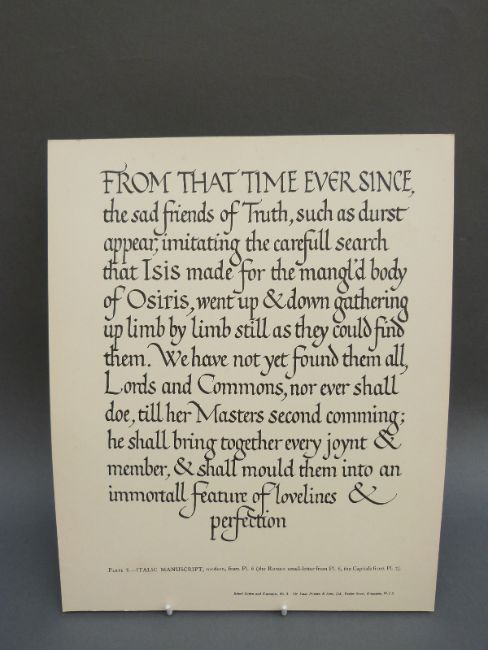 FROM THAT TIME EVER SINCE,
the sad friends of Truth, such as durst
appear, imitating the carefull search
that Isis made for the mangl'd body
of Osiris, went up & down gathering
up limb by limb still as they could find
them. We have not yet found them all,
Lords and Commons, nor ever shall
doe, till her Masters second comming;
he shall bring together every joynt &
member, & shall mould them into an
immortall feature of lovelines &
perfection
ITALIC MANUSCRIPT, modern, from Pl. 6 (the Roman small-letter from Pl. 6, the Capitals from Pl.